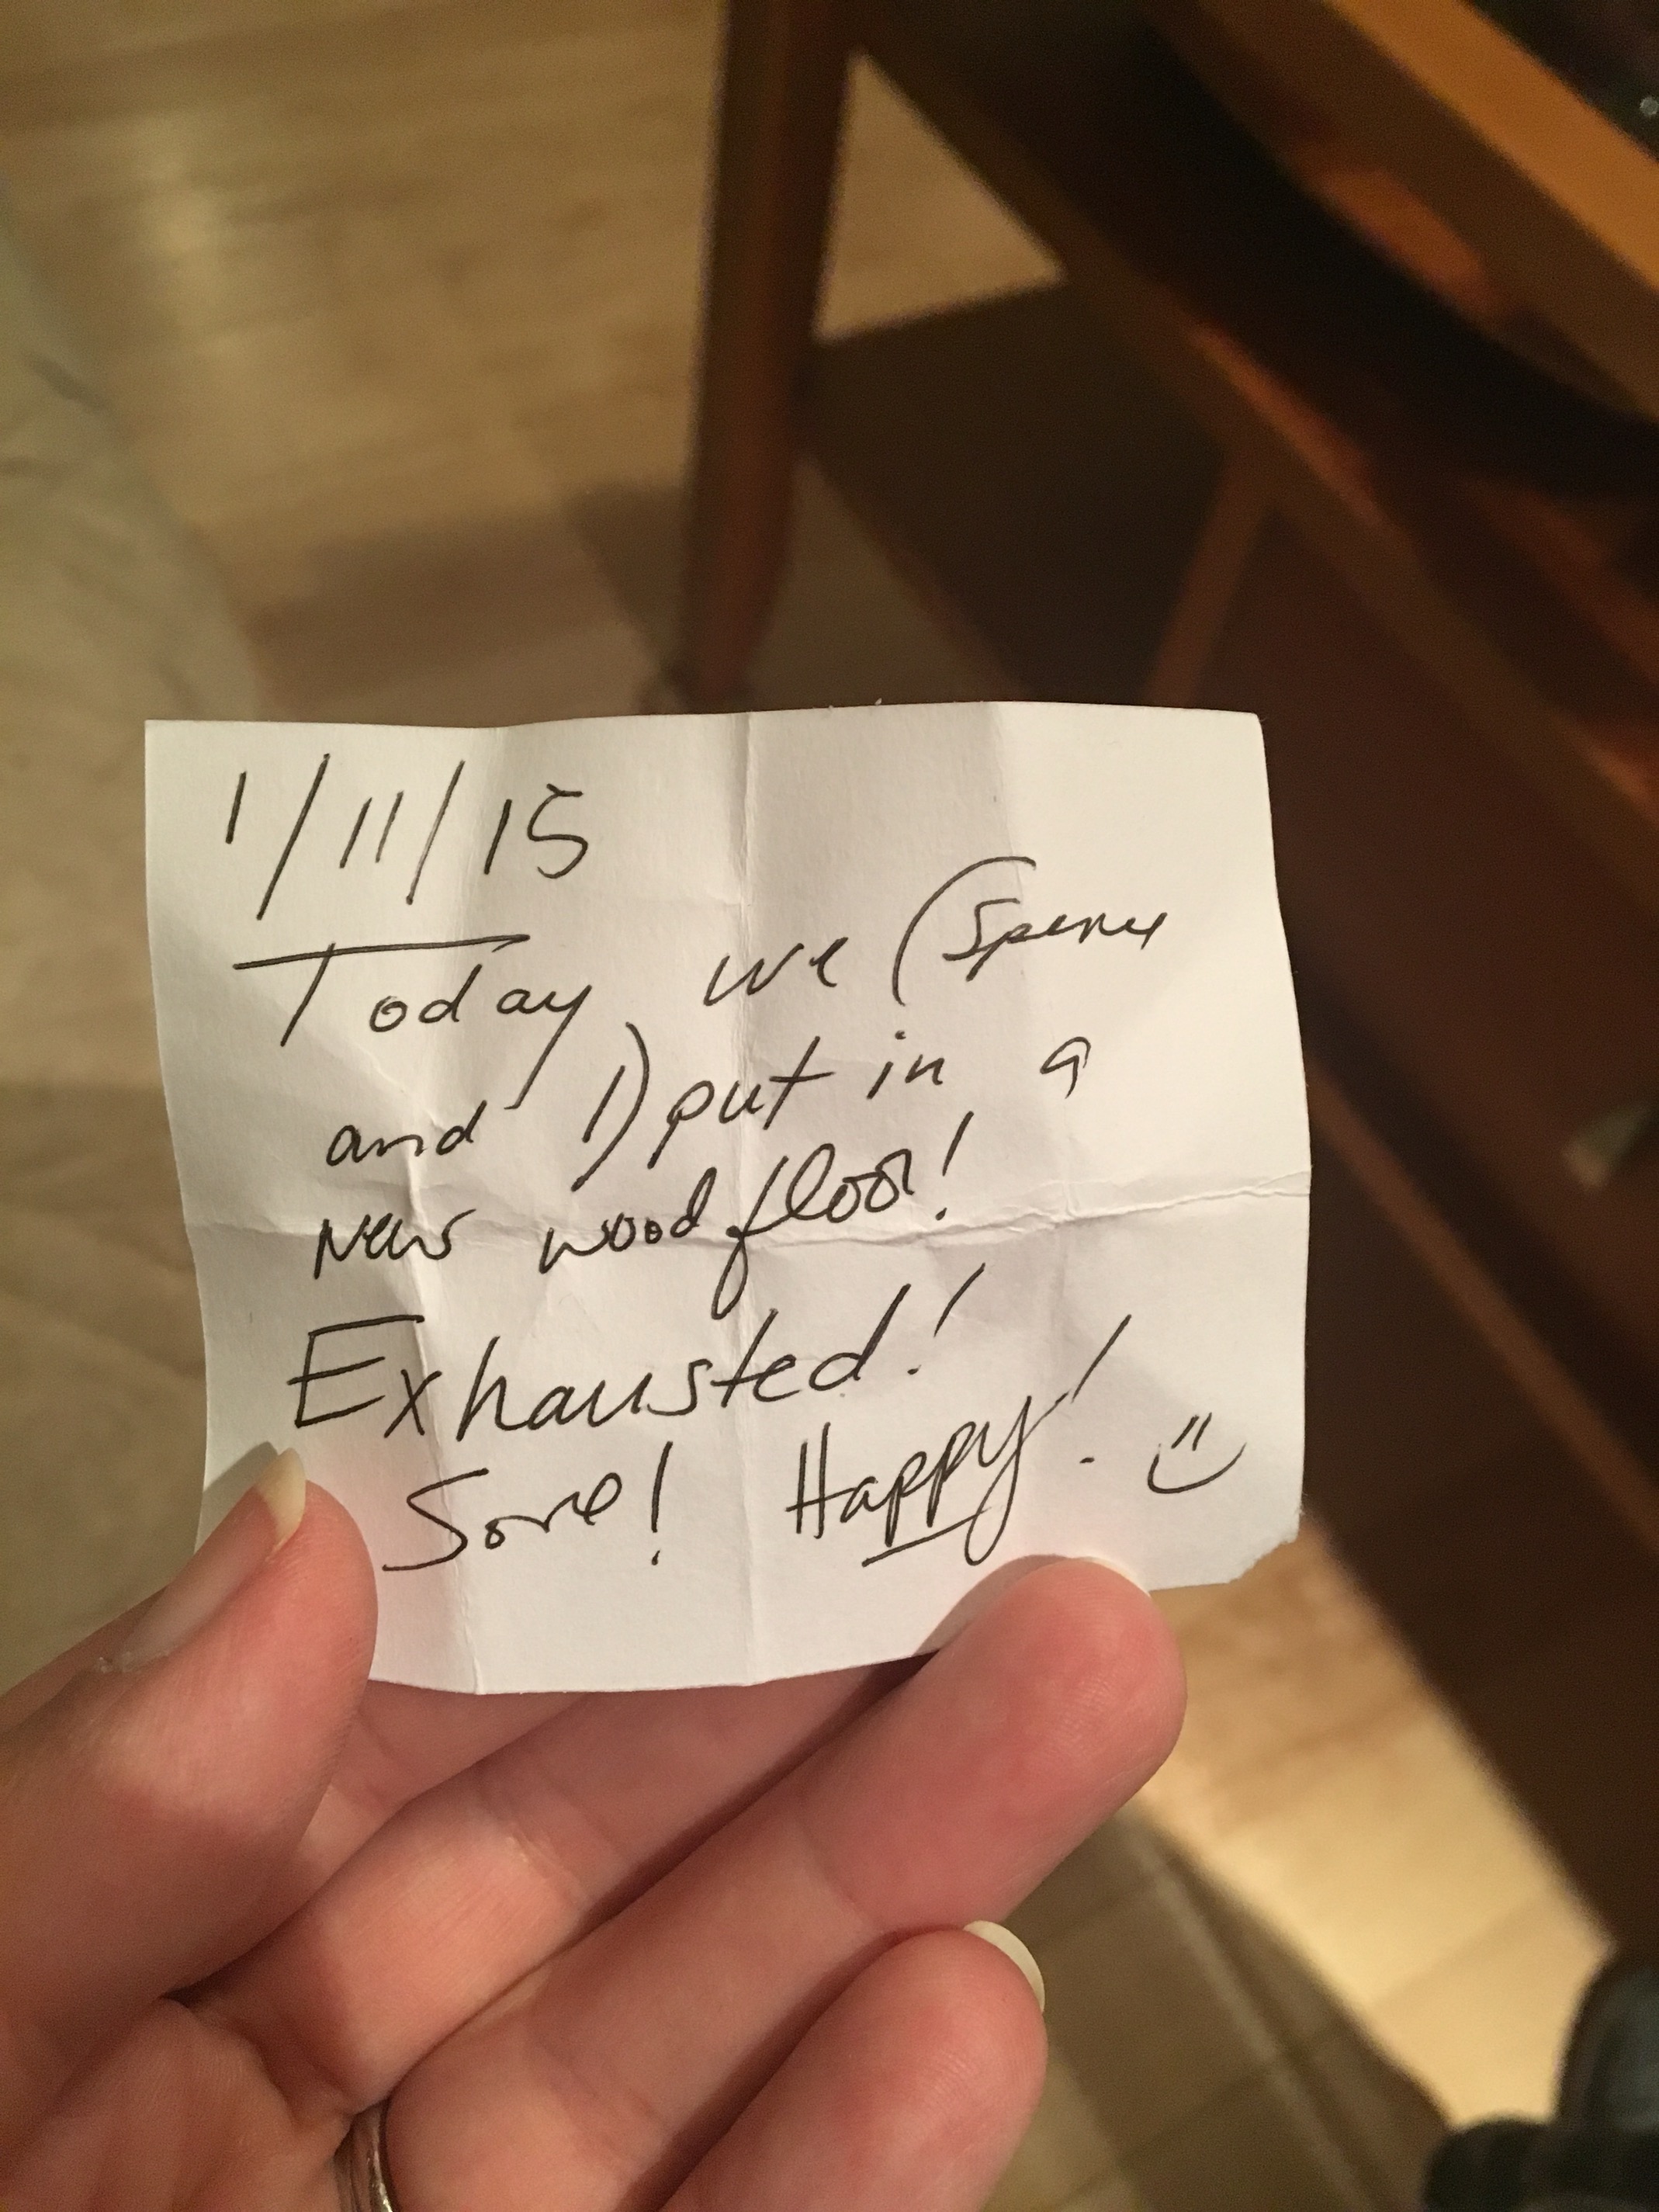 1/11/15
Today we (Spence
and I) put in a
new wood floor!
Exhausted!
Sore! Happy!